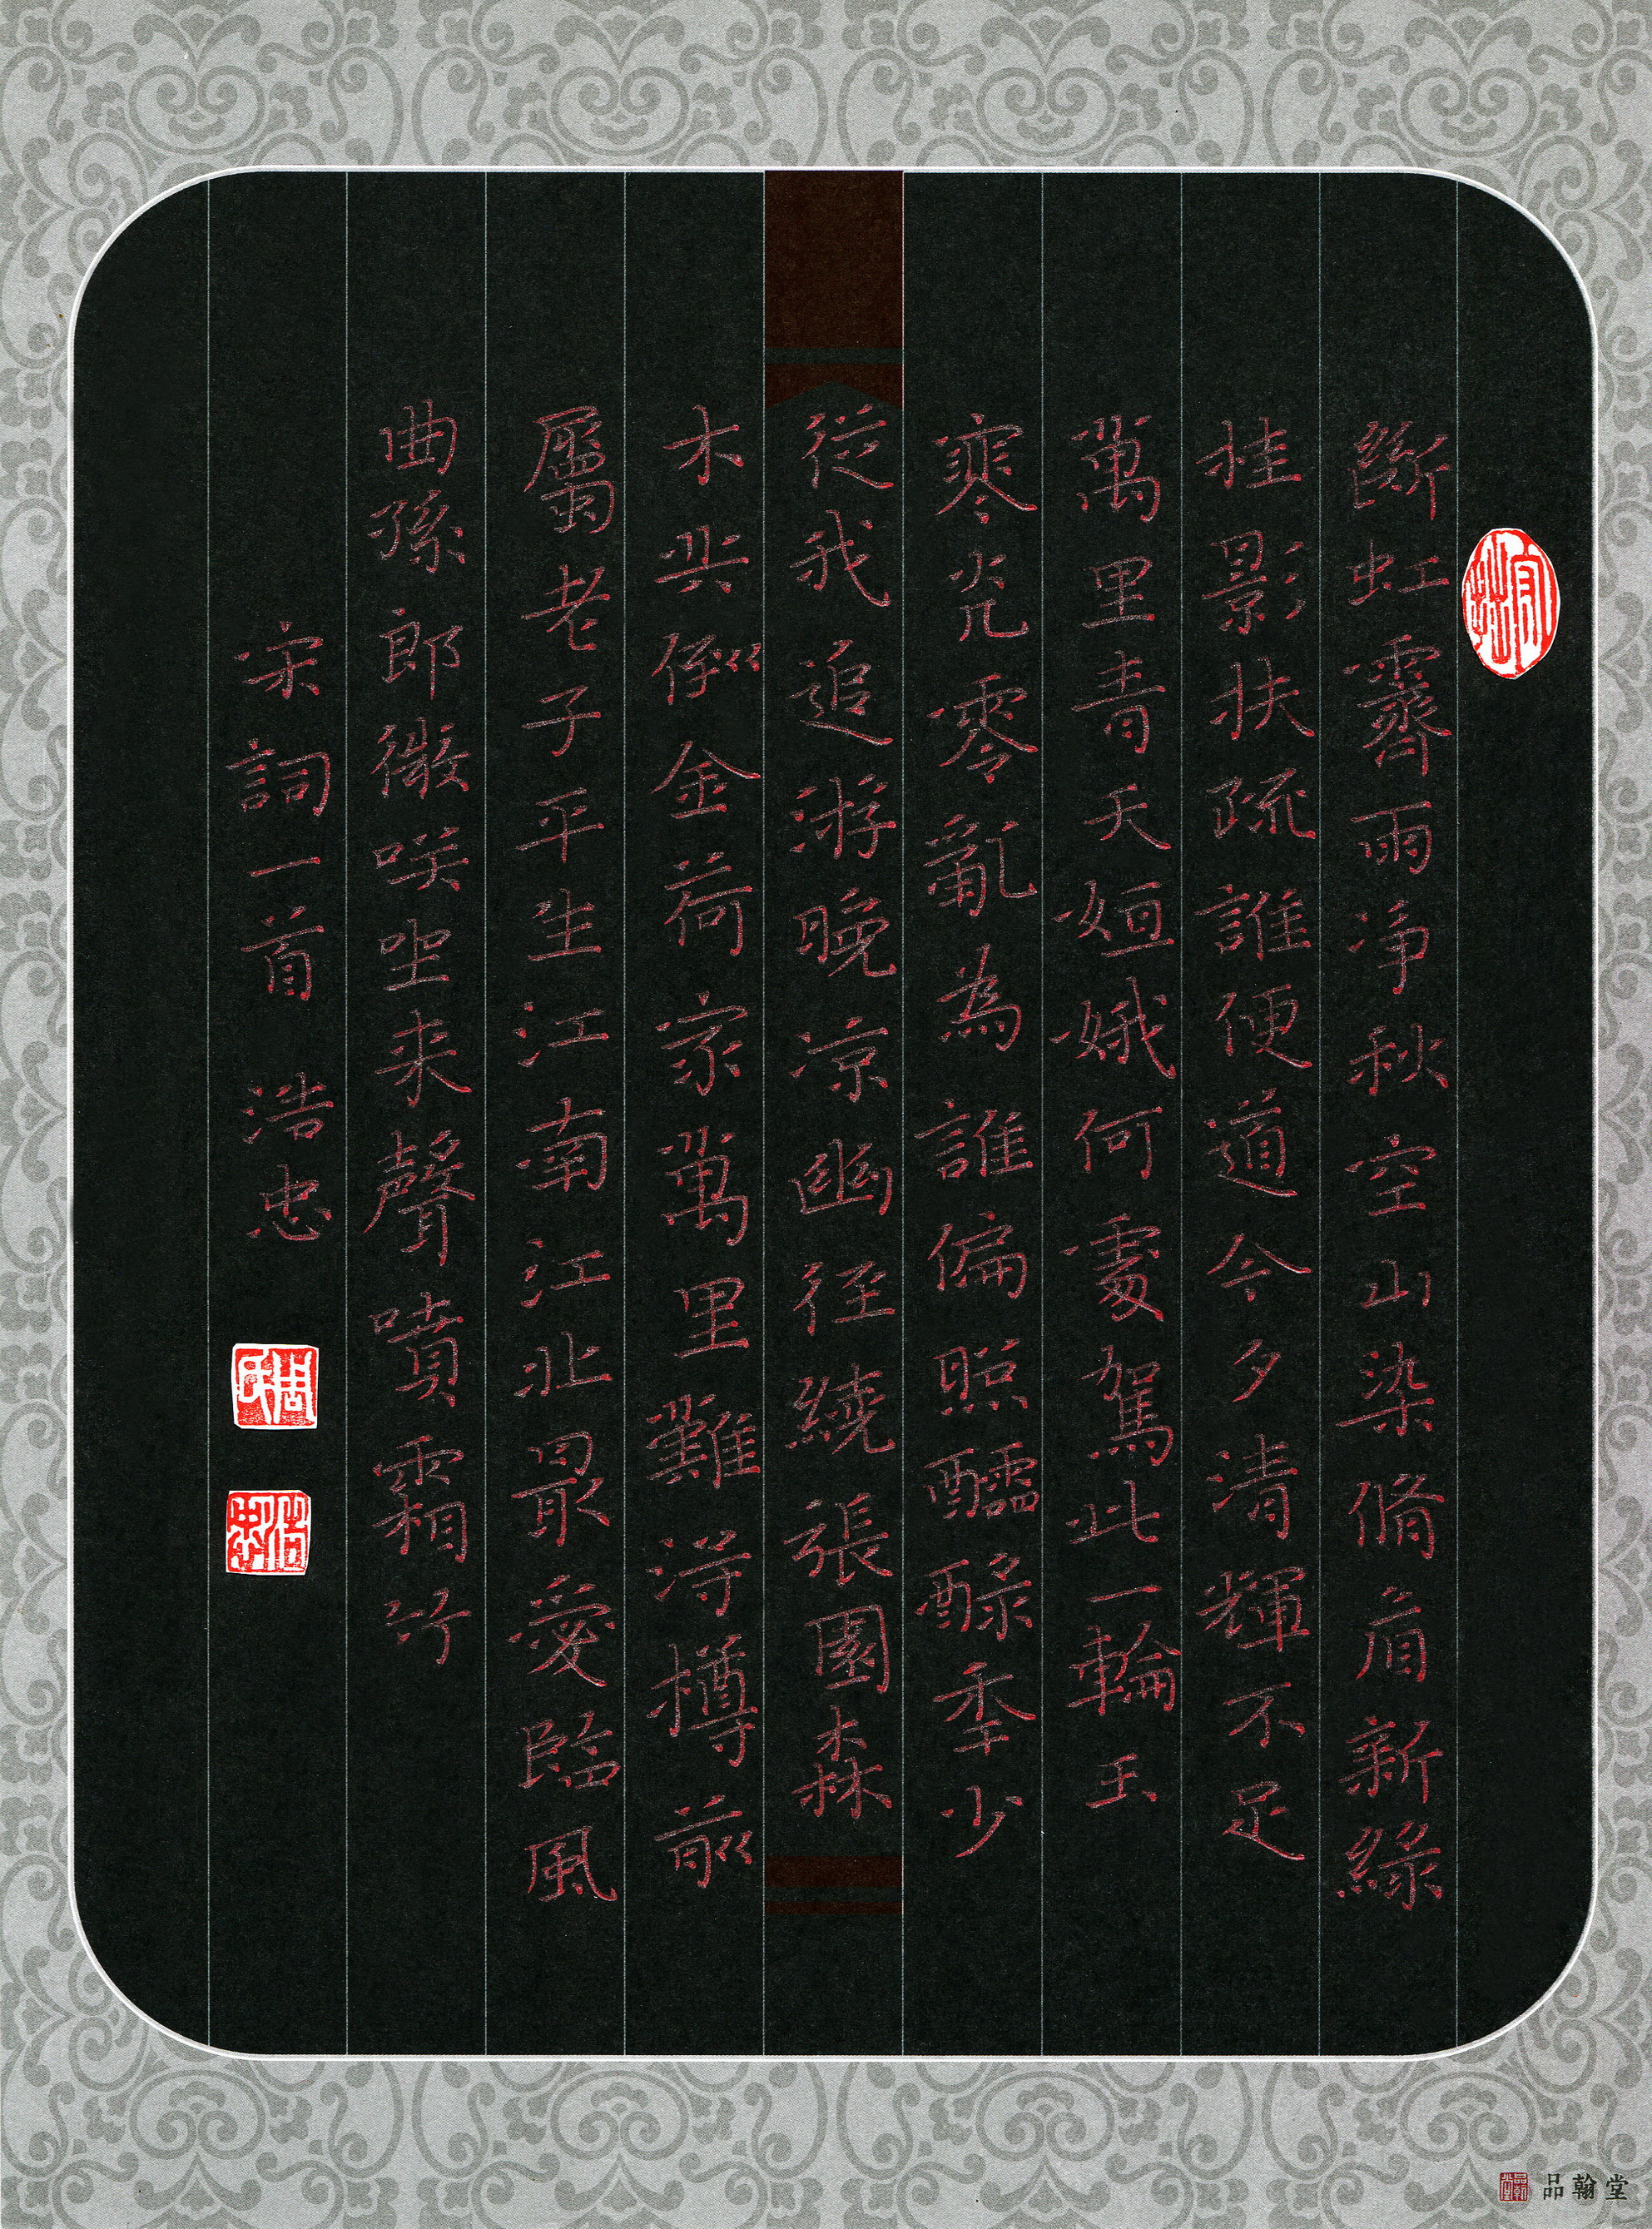 斷虹霽雨淨秋空山染脩眉新綠
桂影扶疏誰便道今夕清輝不足
萬里青天姮娥何處駕此一輪玉
寒光零亂為誰偏照醽醁年少
從我追游晚涼幽徑繞張園森
木共倒金荷家萬里難得樽前
屬老子平生江南江北最愛臨風
曲孫郎微笑坐来聲噴霜竹
宋詞一首 浩忠
周氏
浩忠
品翰堂